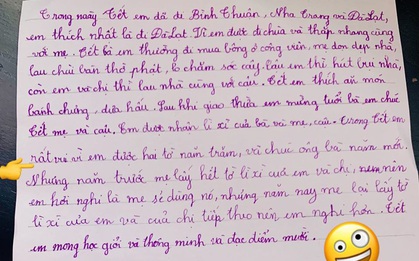 Trong mấy Tết em đã đi Bình Thuận, Nha Trang và Đà Lạt,
em thích nhất là đi Đà Lạt. Vì em được đi chùa và thắp nhang cùng
với mẹ. Tết bà em thường đi mua bông ở công viên, mẹ dọn dẹp nhà,
lau chùi bàn thờ phật, lo chăm sóc cây. Cậu em thì hút bụi nhà,
còn em và chị thì lau nhà cùng với cậu. Tết em thích ăn món
bánh chưng, dưa hấu. Sau khi giao thừa em mừng tuổi bà em chúc
Tết mẹ và cậu. Em được nhận lì xì của bà và mẹ, cậu. Trong Tết em
rất vui vì em được hai tờ năm trăm, và chúc ông bà năm mới.
Nhưng năm trước mẹ lấy hết tờ lì xì của em và chị, nên
em hơi nghi là mẹ sẽ dùng nó, nhưng năm nay mẹ lại lấy tờ
lì xì của em và của chị tiếp theo nên em nghi hơn. Tết
em mong học giỏi và thông minh và đạt điểm mười.